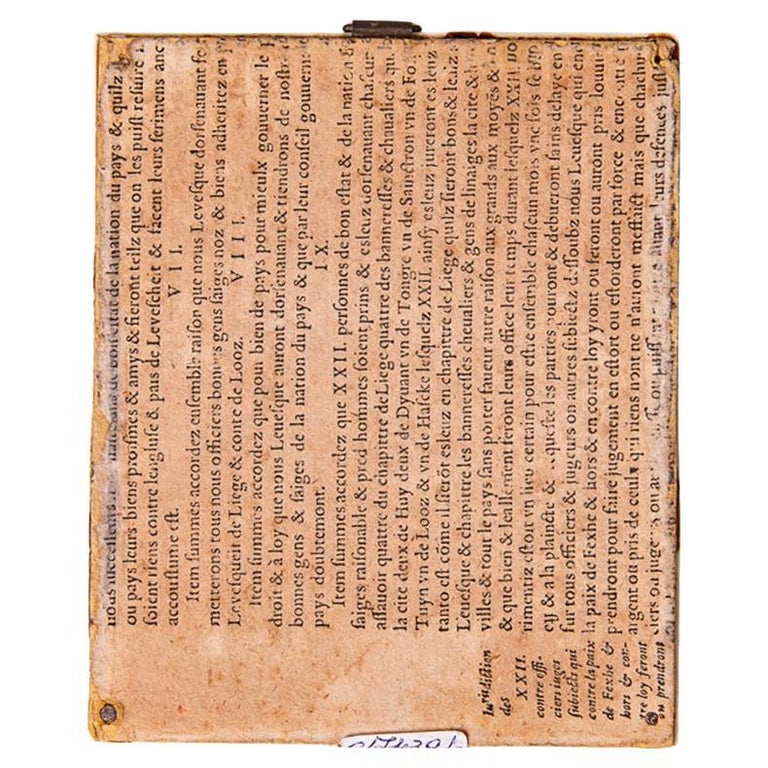 ou pays leurs biens proismes & amys & sieront tellz que on les puist resuire
soient nons contre lengluse & pais de Levescheit & facent leurs serimens
accoustume est.
VII.
Item summes accordez ensemble raison que nous Levesque dorsenauant
metterons tous nous officiers bonnes gens saiges noz & biens adheritez en
Levesqueit de Liege & conte de Looz.
VIII.
Item summes accordez que pour bien de pays pour mieulx gouuerner le
droit & à loy que nous Leuesque auront dorsenauant & tiendrons de nostre
bonnes gens & saiges de la nation du pays & que par leur conseil gouuerne
pays doubtemont.
IX.
Item summes accordez que XXII. personnes de bon estat & de la nation
saiges raisonable & preud hommes soient prins & esleuz dorsenauant chascun
assauoir quattre du chapittre de Liege quattre des banneresses & chaualiers
la cite deux de Huy deux de Dynant vn de Tongre vn de Sainctron vn de
Tuyn vn de Looz & vn de Hascke lesquelz XXII. ainsy esleuz jureront es leur
tanto est cōme il serōt esleuz en chapittre de Liege quilz sieront bons & leaz
Leuesque & chapittre les banneresses cheualiers & gens de linaiges la cite &
villes & tour le pays sans porter faueur autre raison aux grands aux moyēs &
& que bien & lealment feront leurs office leur temps durant lesquelz XXII.
rimentiz estout vn lieu certain pour estre ensemble chascun mois vne fois
& a la plaincte & les parties pouront & debueront sains delaye
sur tous officiers & jugeurs on autres subiectz dessoubz nous Leuesque qui
la paix de Fexhe & hors & en contre loy yront ou feront ou auront pris
prendront pour faire jugement en estort ou estorderont par force &
argent ou pris de ceulx qui riens nont ne n'auront meffaict mais que
ciers ou jugeurs ou leurs defences
Iurisdiction
des XXII.
contre offi-
ciers iuges
subiects qui
contre la paix
de Fexhe &
hors & con-
tre loy feront
ou prendront